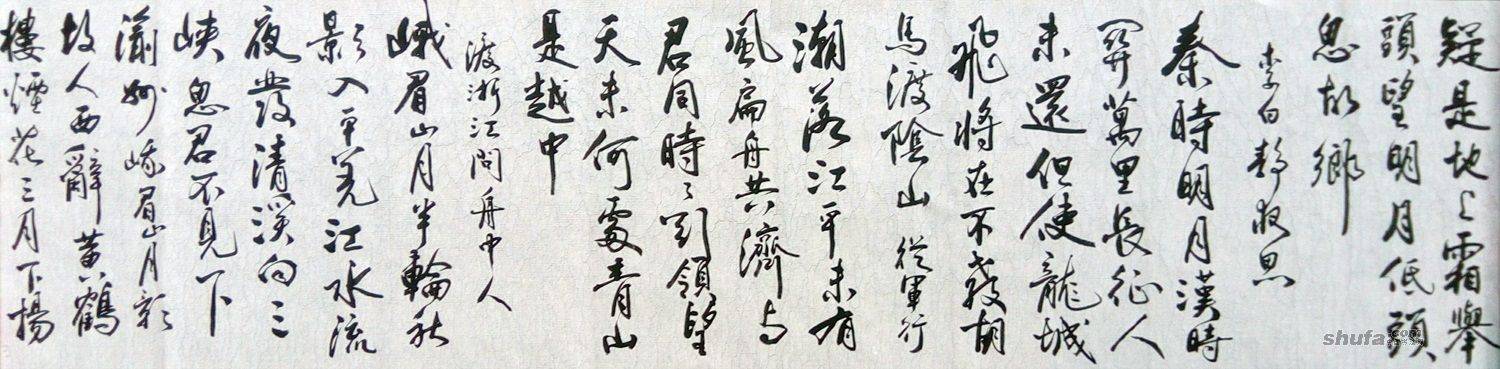 疑是地上霜舉
頭望明月低頭
思故鄉
李白靜夜思
秦時明月漢時
關萬里長征人
未還但使龍城
飛將在不教胡
馬渡陰山 從軍行
潮落江平未有
風扁舟共濟与
君同時々引領望
天末何處青山
是越中
渡浙江問舟中人
峨眉山月半輪秋
影入平羌江水流
夜發清溪向三
峽思君不見下
渝州 峨眉山月歌
故人西辭黃鶴
樓煙花三月下揚
shufa